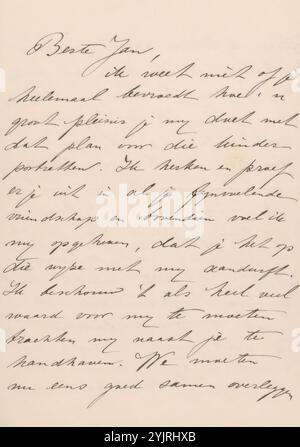 Beste Jan,
ik weet niet of je
heelemaal bevroedt hoe 'n
groot pleizier je my doet met
dat plan voor die kinder
portretten. Ik herken en proef
er je uit in al je fynvoelende
vriendschap en bovendien voel ik
my opgeheven, dat je het op
die wyze met my aandurft.
Ik beschouw 't als heel veel
waard voor my te moeten
trachten my naast je te
handhaven. We moeten
nu eens goed samen overleggen
alamy
Image ID: 2YJRHXB
www.alamy.com